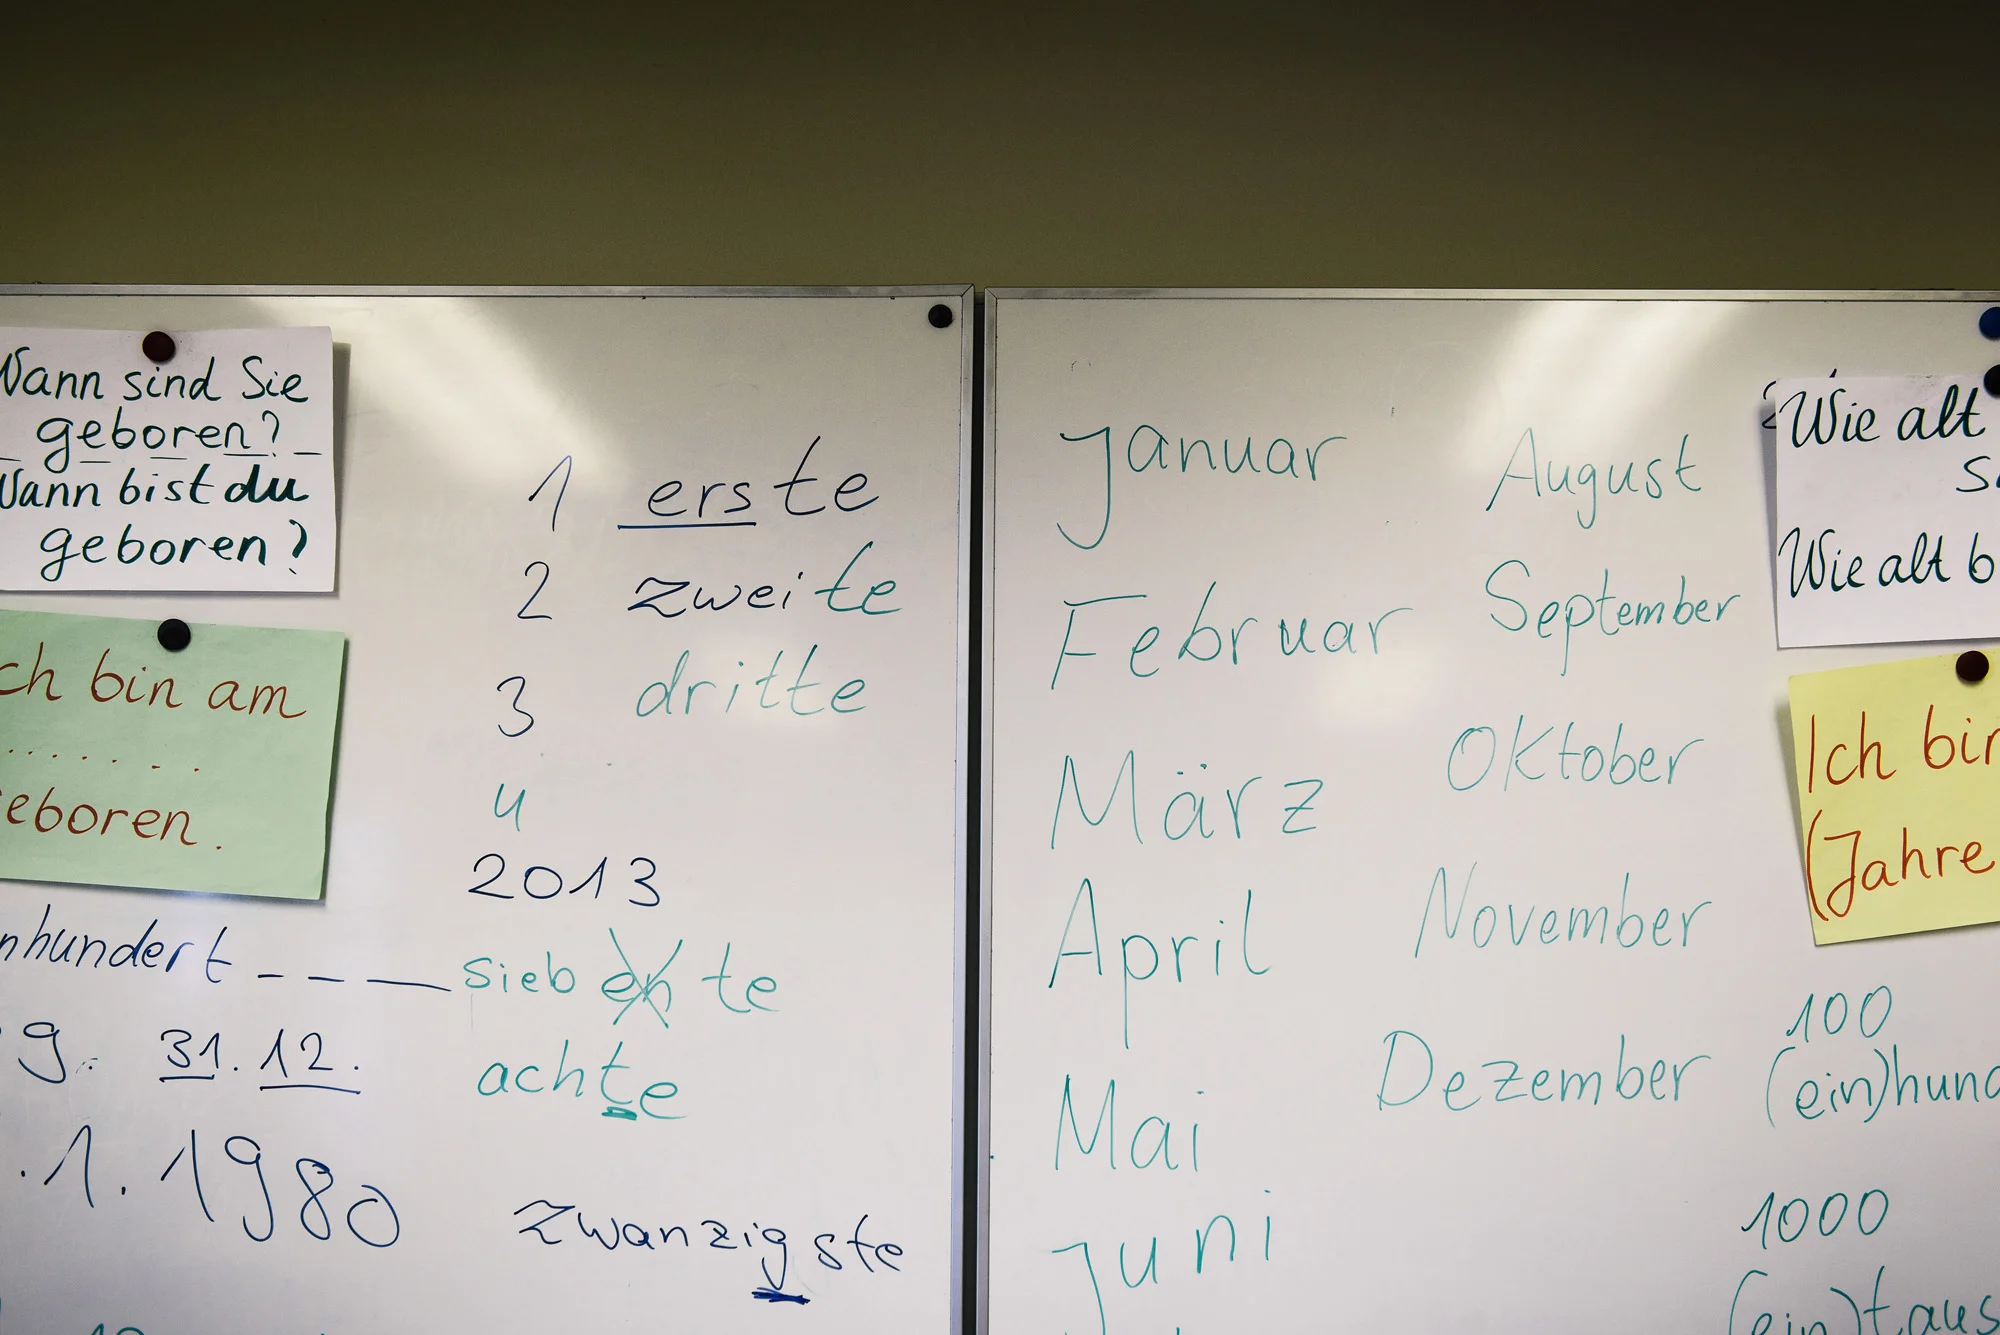 Wann sind Sie
geboren?
Wann bist du
geboren?
ch bin am
. . . . . . . - .
eboren.
nhundert - - —
g. 31. 12.
.1. 1980
1 erste
2 zweite
3 dritte
4
2013
sieb en te
achte
zwanzigste
Januar
Februar
März
April
Mai
Juni
August
September
Oktober
November
Dezember
Wie alt
S
Wie alt b
Ich bin
(Jahre
100
(ein)hund
1000
(ein)taus